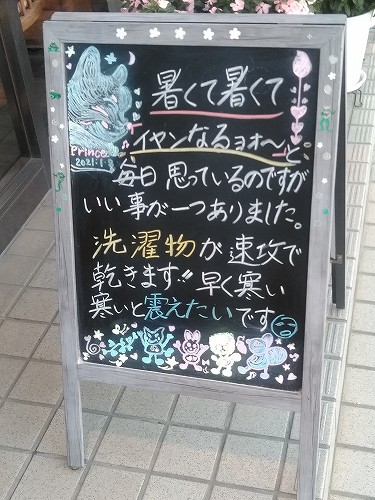 暑くて暑くて
Prince
2021.1.8
イヤンなるョォ〜と
毎日思っているのですが
いい事が一つありました。
洗濯物が速攻で
乾きます〃早く寒い
寒いと震えたいです